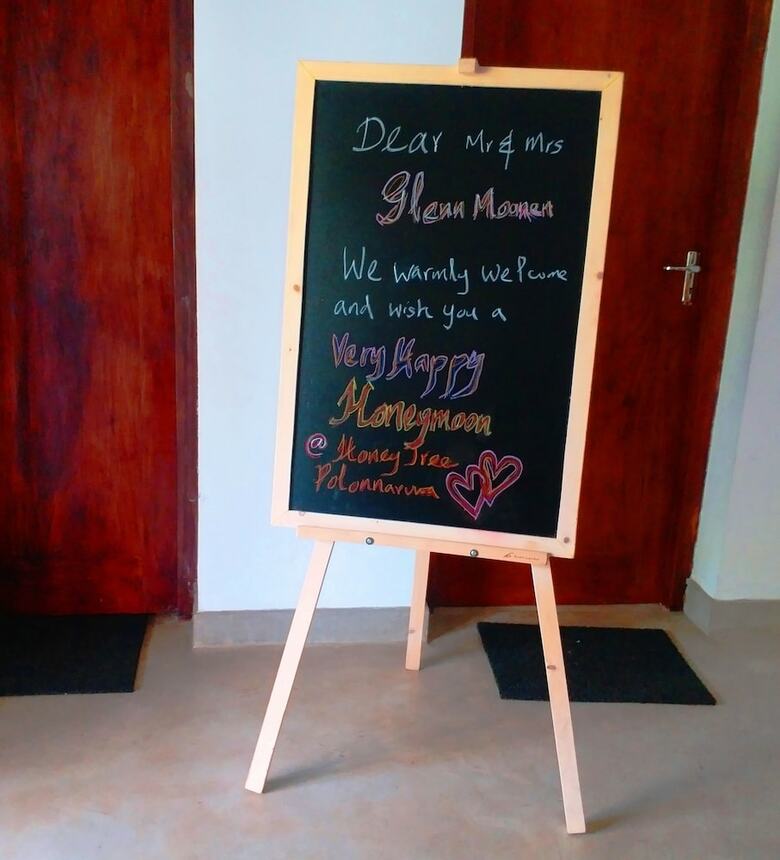 Dear Mr & Mrs
Glenn Moonen
We warmly welcome
and wish you a
Very Happy
Honeymoon
@ Honey Tree
Polonnaruwa